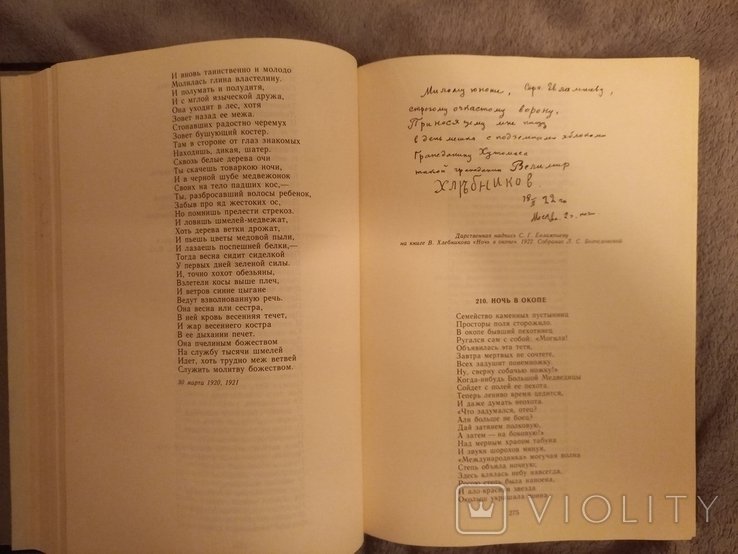 И вновь таинственно и молодо
Молилась глина властелину.
И полумать и полудитя,
И с мглой языческой дружа,
Она уходит в лес, хотя
Зовет назад ее межа.
Стонавших радостно черемух
Зовет бушующий костер.
Там в стороне от глаз знакомых
Находишь, дикая, шатер.
Сквозь белые дерева очи
Ты скачешь товаркою ночи,
И в черной шубе медвежонок
Своих на тело падших кос,—
Ты, разбросавший волосы ребенок,
Забыв про яд жестоких ос,
Но помнишь прелести стрекоз.
И ловишь шмелей-медвежат,
Хоть дерева ветки дрожат,
И пьешь цветы медовой пыли,
И лазаешь поспешней белки,—
Тогда весна сидит сиделкой
У первых дней зеленой силы.
И, точно хохот обезьяны,
Взлетели косы выше плеч,
И ветров синие цыгане
Ведут взволнованную речь.
Она весна или сестра,
В ней кровь весенняя течет,
И жар весеннего костра
В ее дыхании печет.
Она пчелиным божеством
На службу тысячи шмелей
Идет, хоть трудно меж ветвей
Служить молитву божеством.
30 марта 1920, 1921
Милому юноше, Серг.
строгому очкастому ворону,
Приносящему мне пищу
в день мешка с подземными яблоками
Гражданину
такой гражданин Велимир
ХЛѢБНИКОВ
18 22
Москва
Дарственная надпись С. Г. Евлампиеву
на книге В. Хлебникова «Ночь в окопе» 1922. Собрание Л. С.
210. НОЧЬ В ОКОПЕ
Семейство каменных пустынниц
Просторы поля сторожило.
В окопе бывший пехотинец
Ругался сам с собой: «Могила!
Объявилась эта тетя,
Завтра мертвых не сочтете,
Всех задушит понемножку.
Ну, сверну собачью ножку!»
Когда-нибудь Большой Медведицы
Сойдет с полей ее пехота.
Теперь лениво время цедится,
И даже думать неохота.
«Что задумался, отец?
Али больше не боец?
Дай затянем полковую,
А затем — на боковую!»
Над мерным храпом табуна
И звуки шорохов минуя,
«Международника» могучая волна
Степь объяла ночную;
Здесь клялась небу навсегда,
Росою степь была напоена,
И ало-красная звезда
Околыш украшала воина.
275
VIOLITY